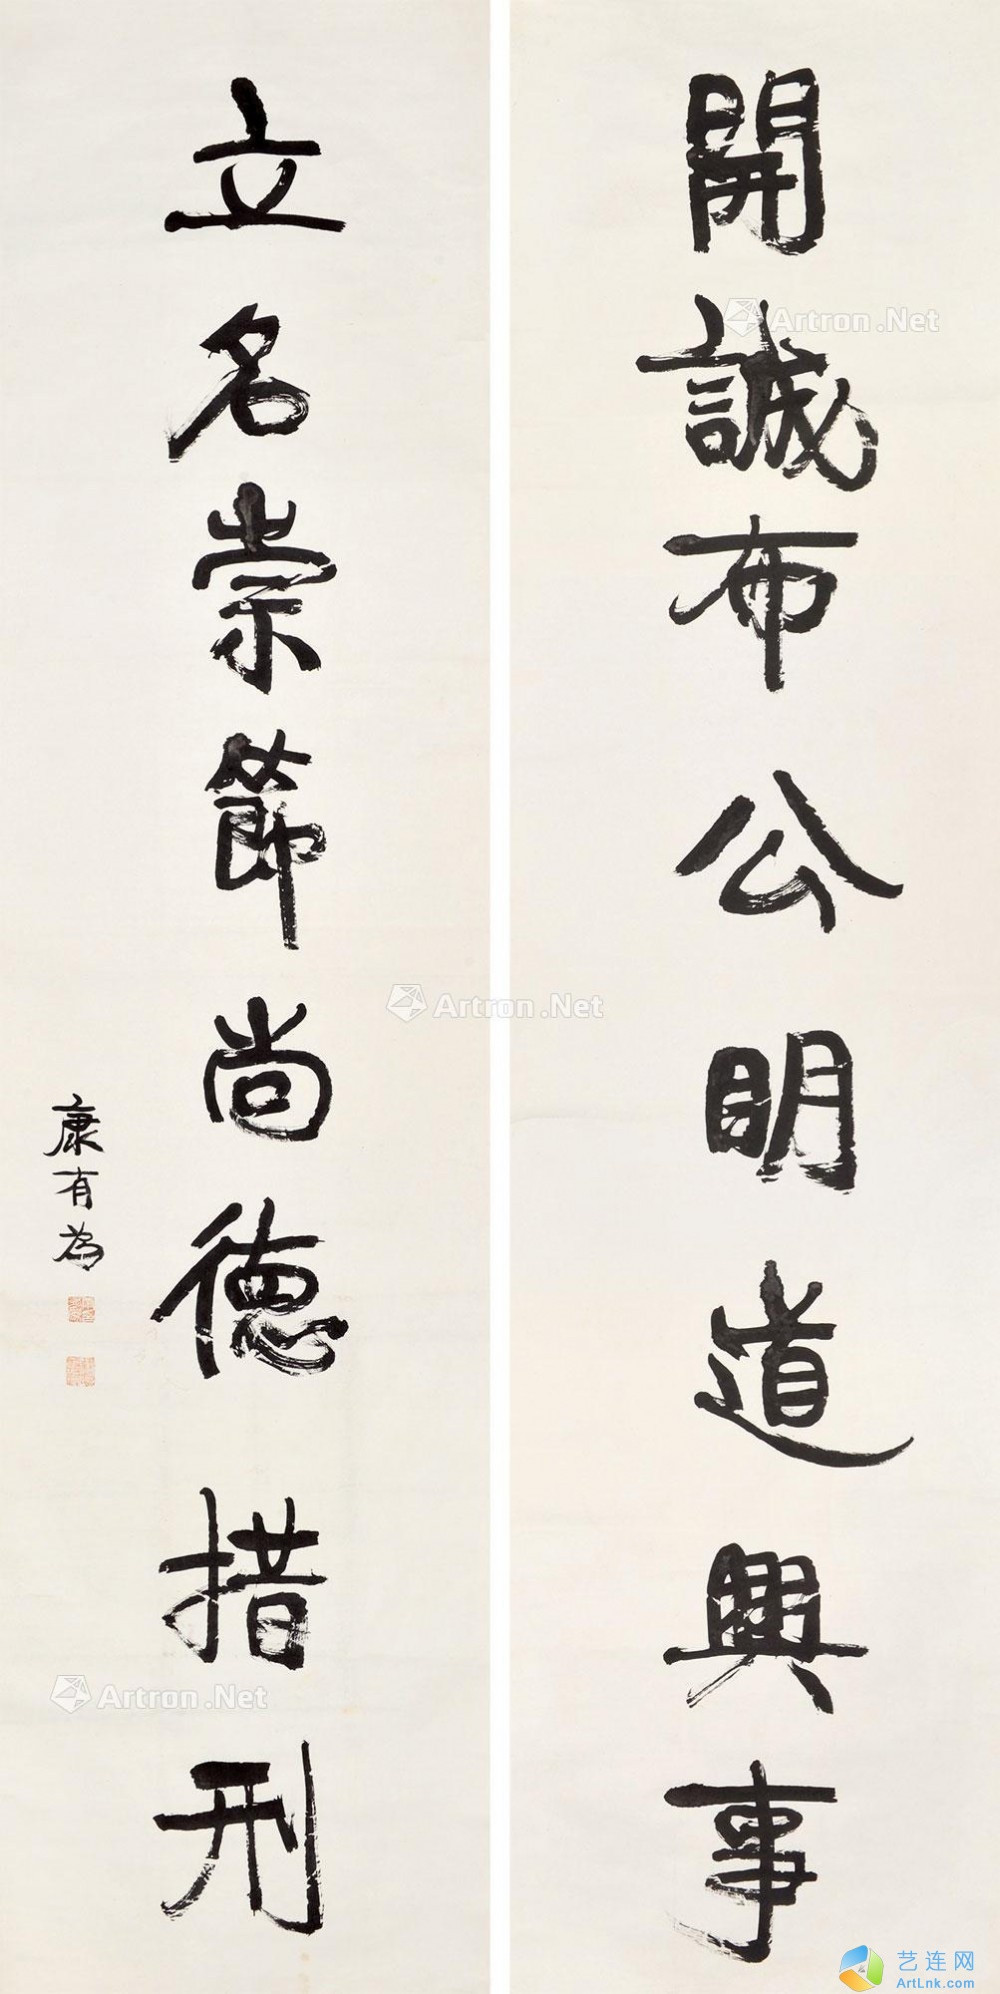 開誠布公明道興事
立名崇節尚德措刑
康有為
Artron.Net
Artron.Net
Artron.Net
艺连网
ArtLnk.com